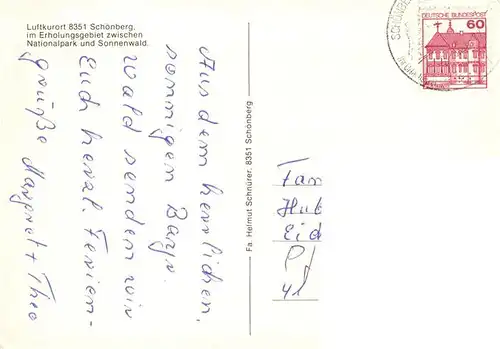 Luftkurort 8351 Schönberg,
im Erholungsgebiet zwischen
Nationalpark und Sonnenwald.
Aus dem herrlichen,
sonnigen Bayr.
Wald senden wir
Euch herzl. Ferien-
grüße Margret + Theo
Fa. Helmut Schnürer, 8351 Schönberg
DEUTSCHE BUNDESPOST
60
Fam
Hub
Eid
41